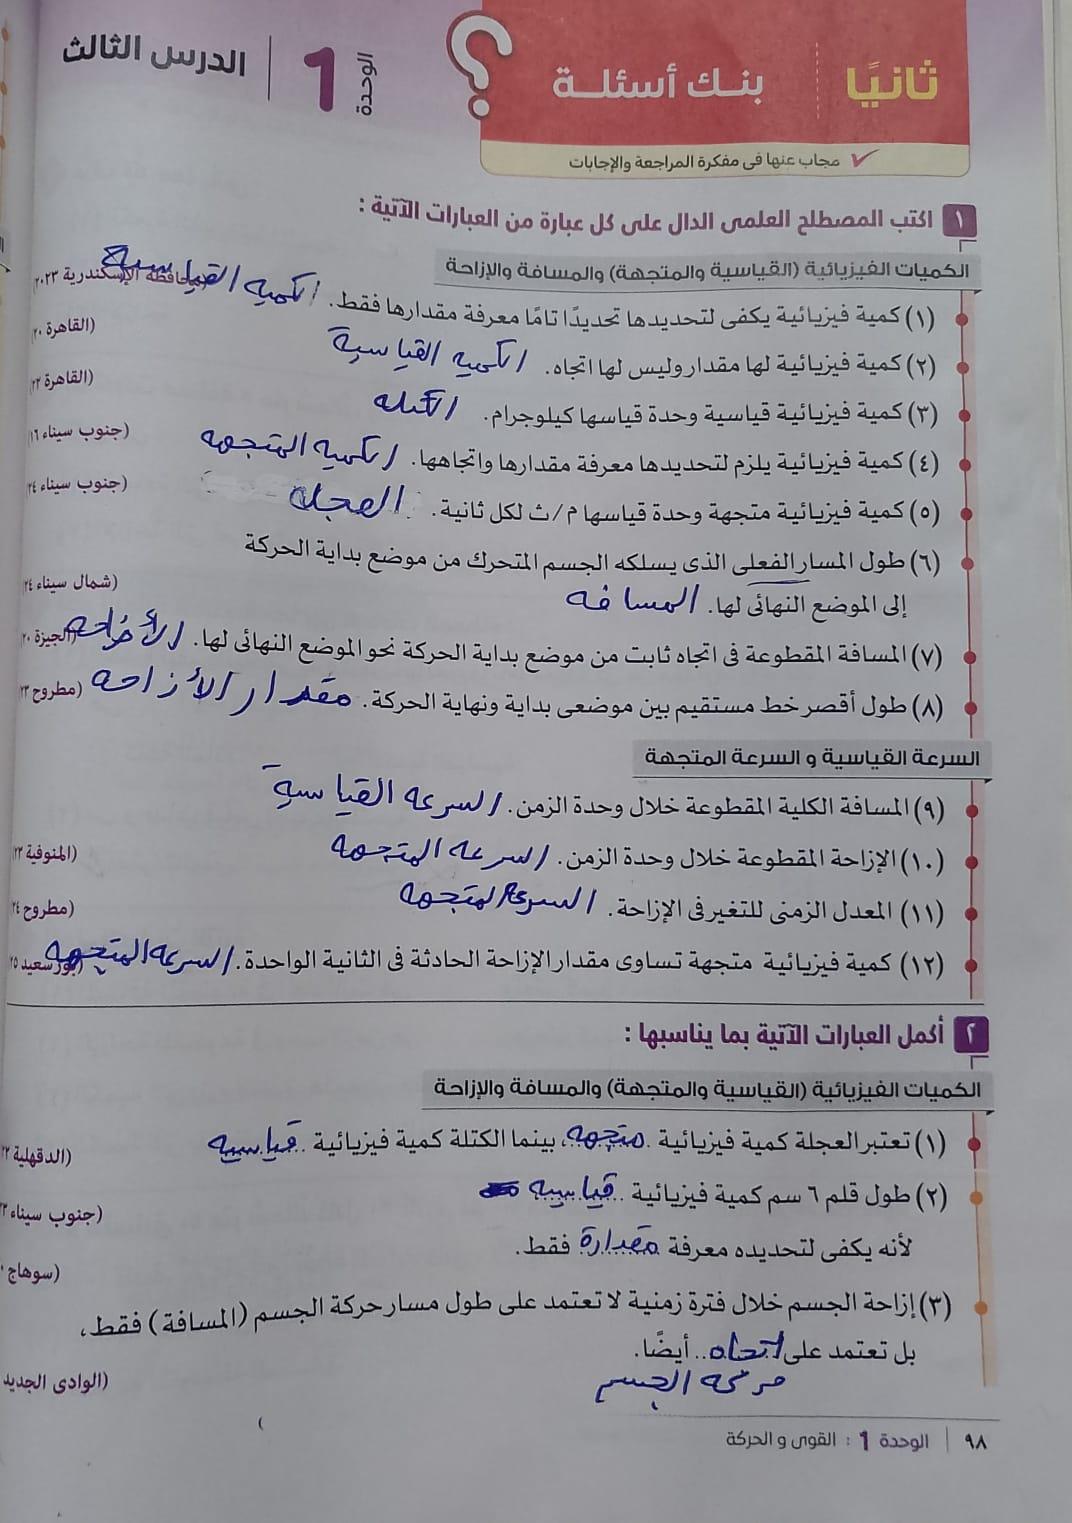 ثانيًا
بنك أسئلة
الوحدة 1 الدرس الثالث
✓ مجاب عنها فى مفكرة المراجعة والإجابات
١ اكتب المصطلح العلمى الدال على كل عبارة من العبارات الآتية :
الكميات الفيزيائية (القياسية والمتجهة) والمسافة والإزاحة
(١) كمية فيزيائية يكفى لتحديدها تحديدًا تامًا معرفة مقدارها فقط. الكميه القياسية (محافظة الإسكندرية ٢٠٢٣)
(٢) كمية فيزيائية لها مقدار وليس لها اتجاه. الكميه القياسية (القاهرة ٢٠)
(٣) كمية فيزيائية قياسية وحدة قياسها كيلوجرام. الكتله (القاهرة ٢٢)
(٤) كمية فيزيائية يلزم لتحديدها معرفة مقدارها واتجاهها. الكميه المتجهه (جنوب سيناء ١٦)
(٥) كمية فيزيائية متجهة وحدة قياسها م/ث لكل ثانية. العجله (جنوب سيناء ٢٤)
(٦) طول المسار الفعلى الذى يسلكه الجسم المتحرك من موضع بداية الحركة
إلى الموضع النهائى لها. المسافه (شمال سيناء ٢٤)
(٧) المسافة المقطوعة فى اتجاه ثابت من موضع بداية الحركة نحو الموضع النهائى لها. الأزاحه (الجيزة ٢٠)
(٨) طول أقصر خط مستقيم بين موضعى بداية ونهاية الحركة. مقدار الأزاحه (مطروح ٢٣)
السرعة القياسية و السرعة المتجهة
(٩) المسافة الكلية المقطوعة خلال وحدة الزمن. السرعه القياسية
(١٠) الإزاحة المقطوعة خلال وحدة الزمن. السرعه المتجهه (المنوفية ٢٣)
(١١) المعدل الزمنى للتغير فى الإزاحة. السرعه المتجهه (مطروح ٢٤)
(١٢) كمية فيزيائية متجهة تساوى مقدار الإزاحة الحادثة فى الثانية الواحدة. السرعه المتجهه (بورسعيد ٢٥)
٢ أكمل العبارات الآتية بما يناسبها :
الكميات الفيزيائية (القياسية والمتجهة) والمسافة والإزاحة
(١) تعتبر العجلة كمية فيزيائية متجهه، بينما الكتلة كمية فيزيائية قياسيه (الدقهلية ٢٢
(٢) طول قلم ٦ سم كمية فيزيائية قياسيه (جنوب سيناء
لأنه يكفى لتحديده معرفة مقدارة فقط. (سوهاج
(٣) إزاحة الجسم خلال فترة زمنية لا تعتمد على طول مسار حركة الجسم (المسافة) فقط،
بل تعتمد على اتجاه .. أيضًا.
حركه الجسم (الوادى الجديد
٩٨ | الوحدة 1 : القوى و الحركة